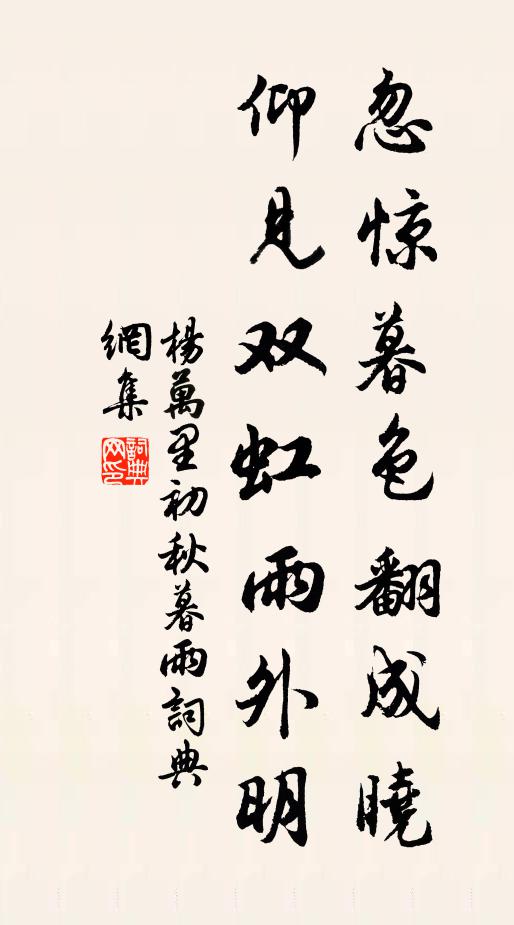 忽惊暮色翻成曉
仰见双虹雨外明
楊萬里初秋暮雨詞典
網集
詞典网印